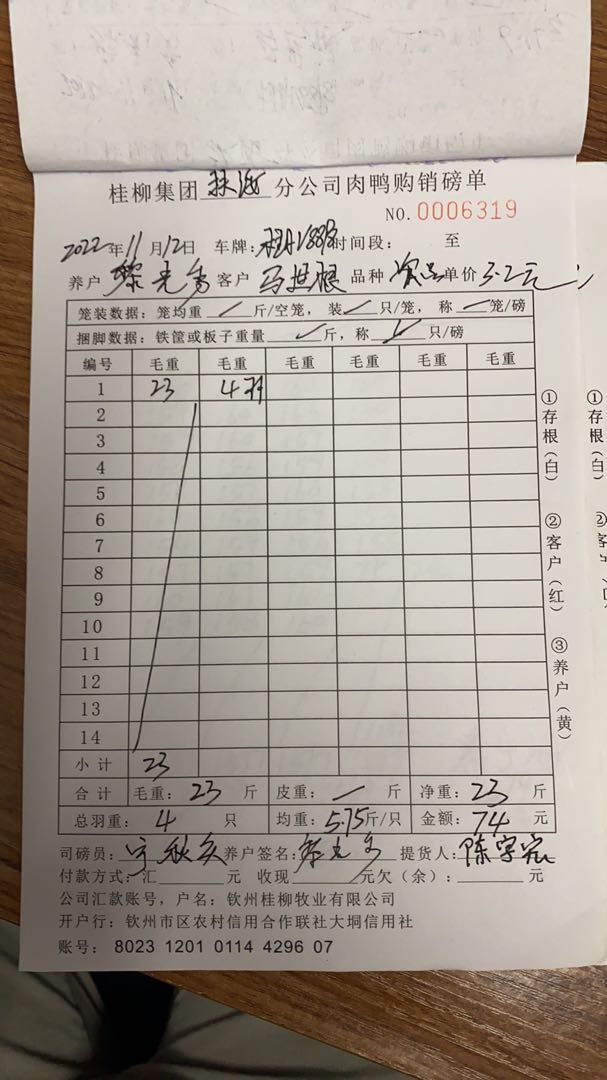 桂柳集团 分公司肉鸭购销磅单
NO.0006319
2022年11月12日 车牌: 时间段: 至
养户 客户 品种 单价3.2元
笼装数据:笼均重 / 斤/空笼,装 / 只/笼,称 / 笼/磅
捆脚数据:铁筐或板子重量 / 斤,称 / 只/磅
编号 毛重 毛重 毛重 毛重 毛重 毛重
1 23 4羽
2
3
4
5
6
7
8
9
10
11
12
13
14
小计 23
合计 毛重:23 斤 皮重:/ 斤 净重:23 斤
总羽重:4 只 均重:5.75斤/只 金额:74 元
司磅员: 养户签名: 提货人:陈宇宏
付款方式:汇 元 收现 元欠(余): 元
公司汇款账号,户名:钦州桂柳牧业有限公司
开户行:钦州市区农村信用合作联社大垌信用社
账号:8023 1201 0114 4296 07
①存根(白)
②客户(红)
③养户(黄)
①存根(白)
②客